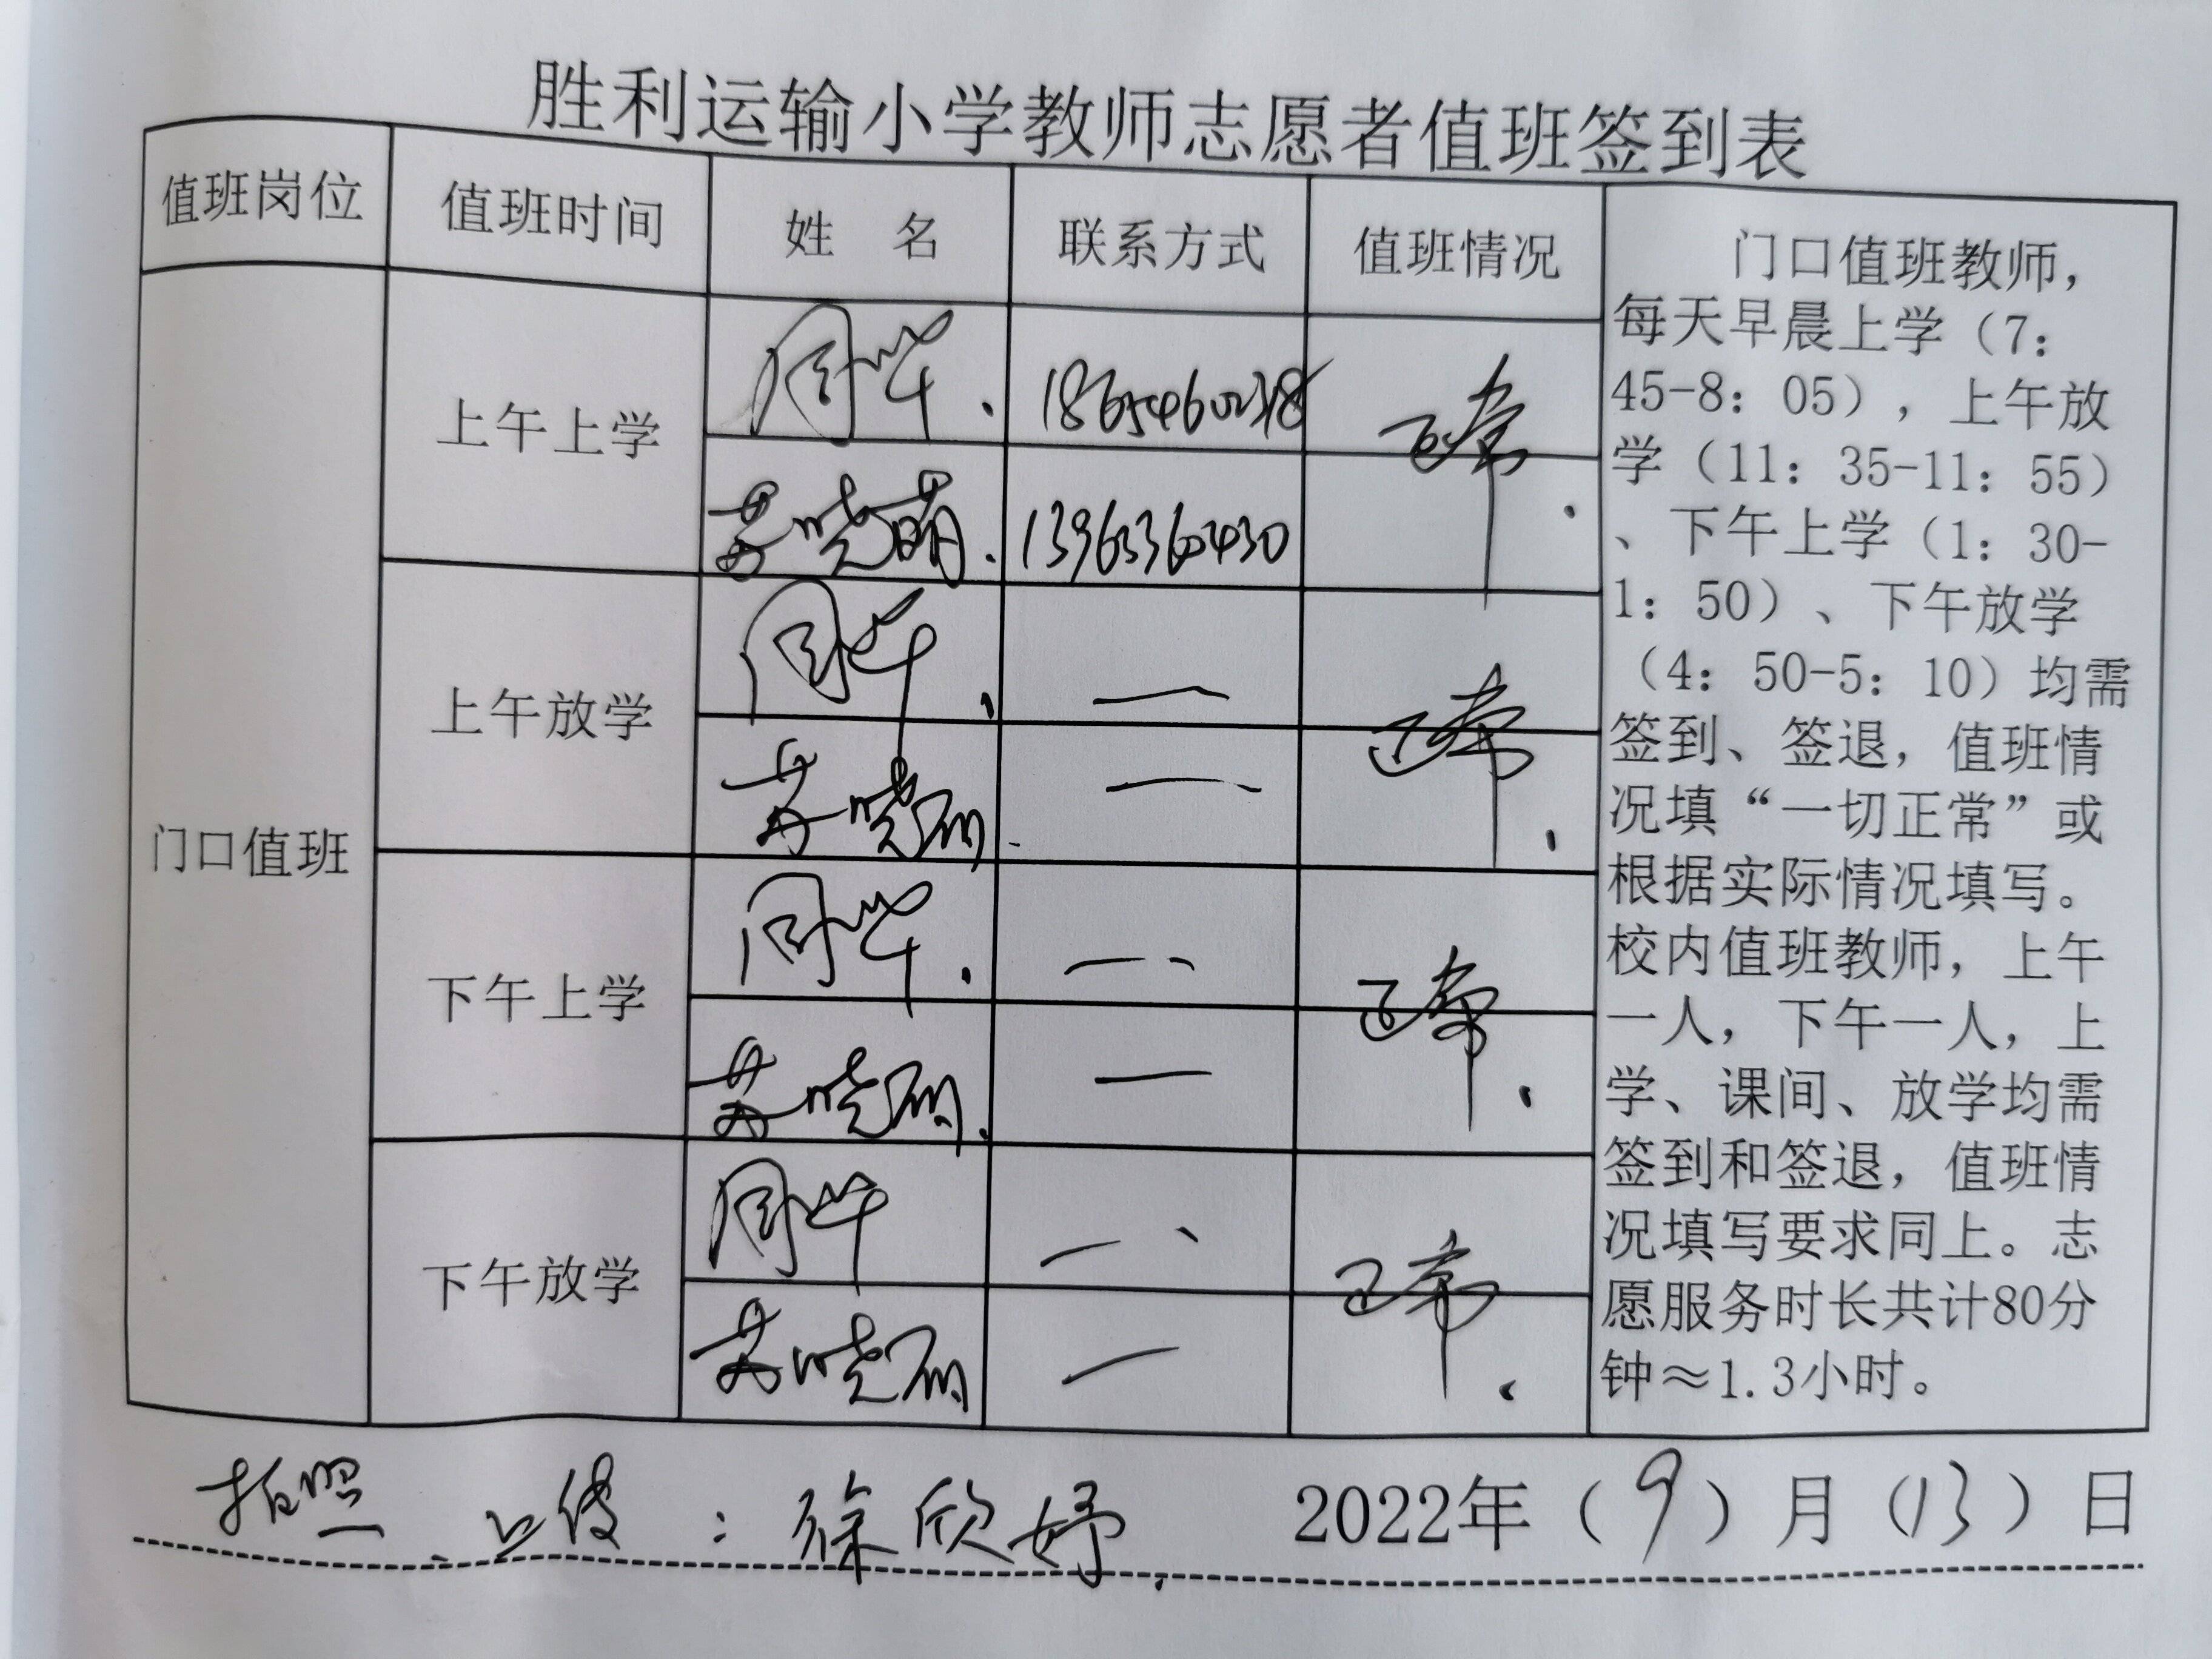 胜利运输小学教师志愿者值班签到表
值班岗位 值班时间 姓 名 联系方式 值班情况
门口值班
上午上学 周华. 正常.
苏晓萌. 13963360430
上午放学 周华. 一 正常.
苏晓萌. 一
下午上学 周华. 一、 正常.
苏晓萌. 一
下午放学 周华 一、 正常.
苏晓萌 一
门口值班教师，
每天早晨上学（7：
45-8：05），上午放
学（11：35-11：55）
、下午上学（1：30-
1：50）、下午放学
（4：50-5：10）均需
签到、签退，值班情
况填“一切正常”或
根据实际情况填写。
校内值班教师，上午
一人，下午一人，上
学、课间、放学均需
签到和签退，值班情
况填写要求同上。志
愿服务时长共计80分
钟≈1.3小时。
拍照、上传：徐欣妤. 2022年（9）月（13）日